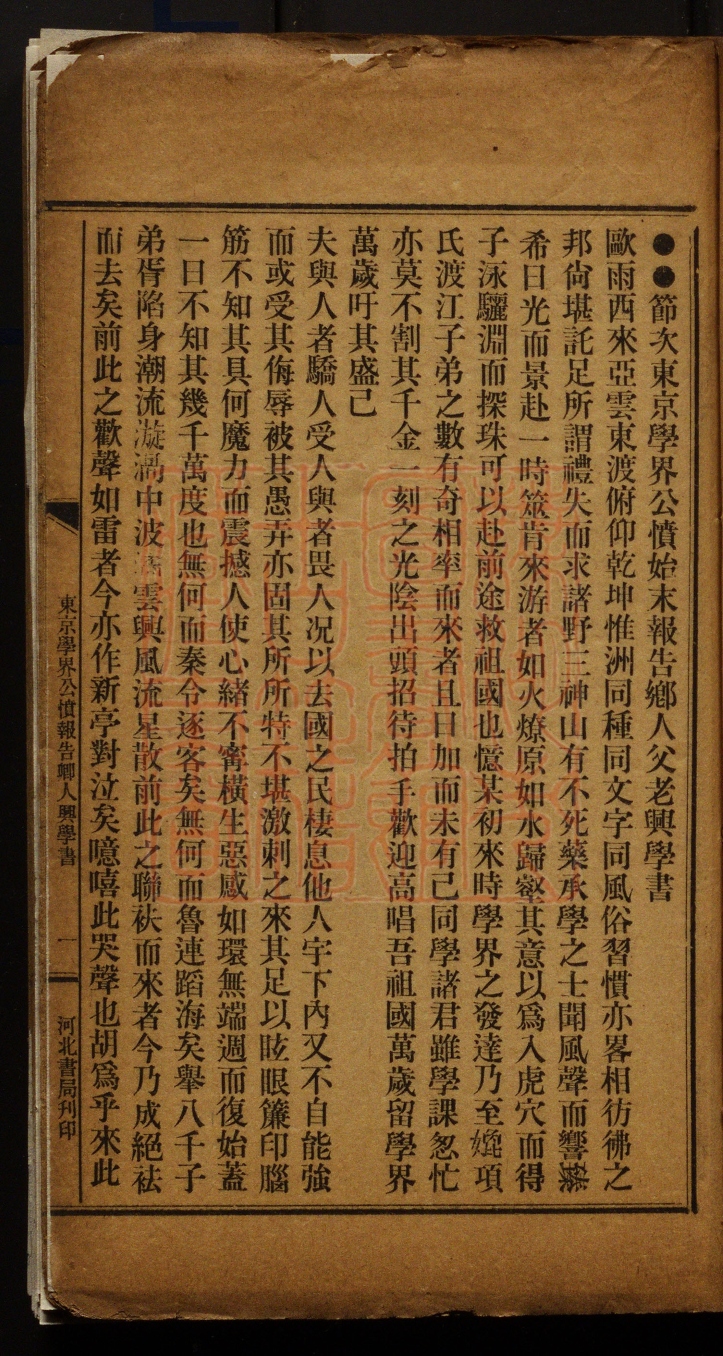 ●●節次東京學界公憤始末報告鄉人父老興學書
歐雨西來亞雲東渡俯仰乾坤惟洲同種同文字同風俗習慣亦畧相彷彿之
邦尙堪託足所謂禮失而求諸野三神山有不死藥承學之士聞風聲而響
希日光而景赴一時簉肯來游者如火燎原如水歸壑其意以爲入虎穴而得
子泳驪淵而探珠可以赴前途救祖國也憶某初來時學界之發達乃至項
氏渡江子弟之數有奇相率而來者且日加而未有已同學諸君雖學課怱忙
亦莫不割其千金一刻之光陰出頭招待拍手歡迎高唱吾祖國萬歲留學界
萬歲吁其盛己
夫與人者驕人受人與者畏人况以去國之民棲息他人宇下內又不自能強
而或受其侮辱被其愚弄亦固其所所特不堪激刺之來其足以眩眼簾印腦
筋不知其具何魔力而震撼人使心緒不寗橫生惡感如環無端週而復始蓋
一日不知其幾千萬度也無何而秦令逐客矣無何而魯連蹈海矣舉八千子
弟胥陷身潮流漩渦中波雲興風流星散前此之聯袂而來者今乃成絕袪
而去矣前此之歡聲如雷者今亦作新亭對泣矣噫嘻此哭聲也胡爲乎來此
東京學界公憤報告鄉人興學書
一
河北書局刊印